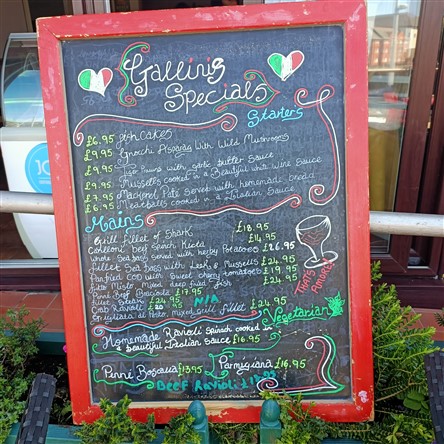 Gallinis
Specials
Starters
£6.95 fishcakes
£9.95 Gnocchi Asparag With Wild Mushrooms
£9.95 with garlic butter sauce
£9.95 Mussells cooked in a Beautiful white wine Sauce
£7.95 Mackerel Pâté Served with homemade bread
£6.95 Meatballs cooked in a Italian Sauce
Mains
Grill fillet of Shark £18.95
£14.95
whole Sea bass served with herby Potatoes £26.95
fillet Sea bass with Leek & Mussells £24.95
Panfried Cod with Sweet cherry tomatoes £19.95
fritto Misto, Mixed deep fried fish £24.95
Penne Beef £17.95
fillet Steak £24.95 N/A
Crab Ravioli £20.95
Mixed grill fillet £24.95
THAT'S AMORE
Vegetarian
Homemade Ravioli Spinach cooked in
a beautiful Italian Sauce £16.95
Penne Boscaua £13.95 Parmigiana £16.95
Beef Ravioli